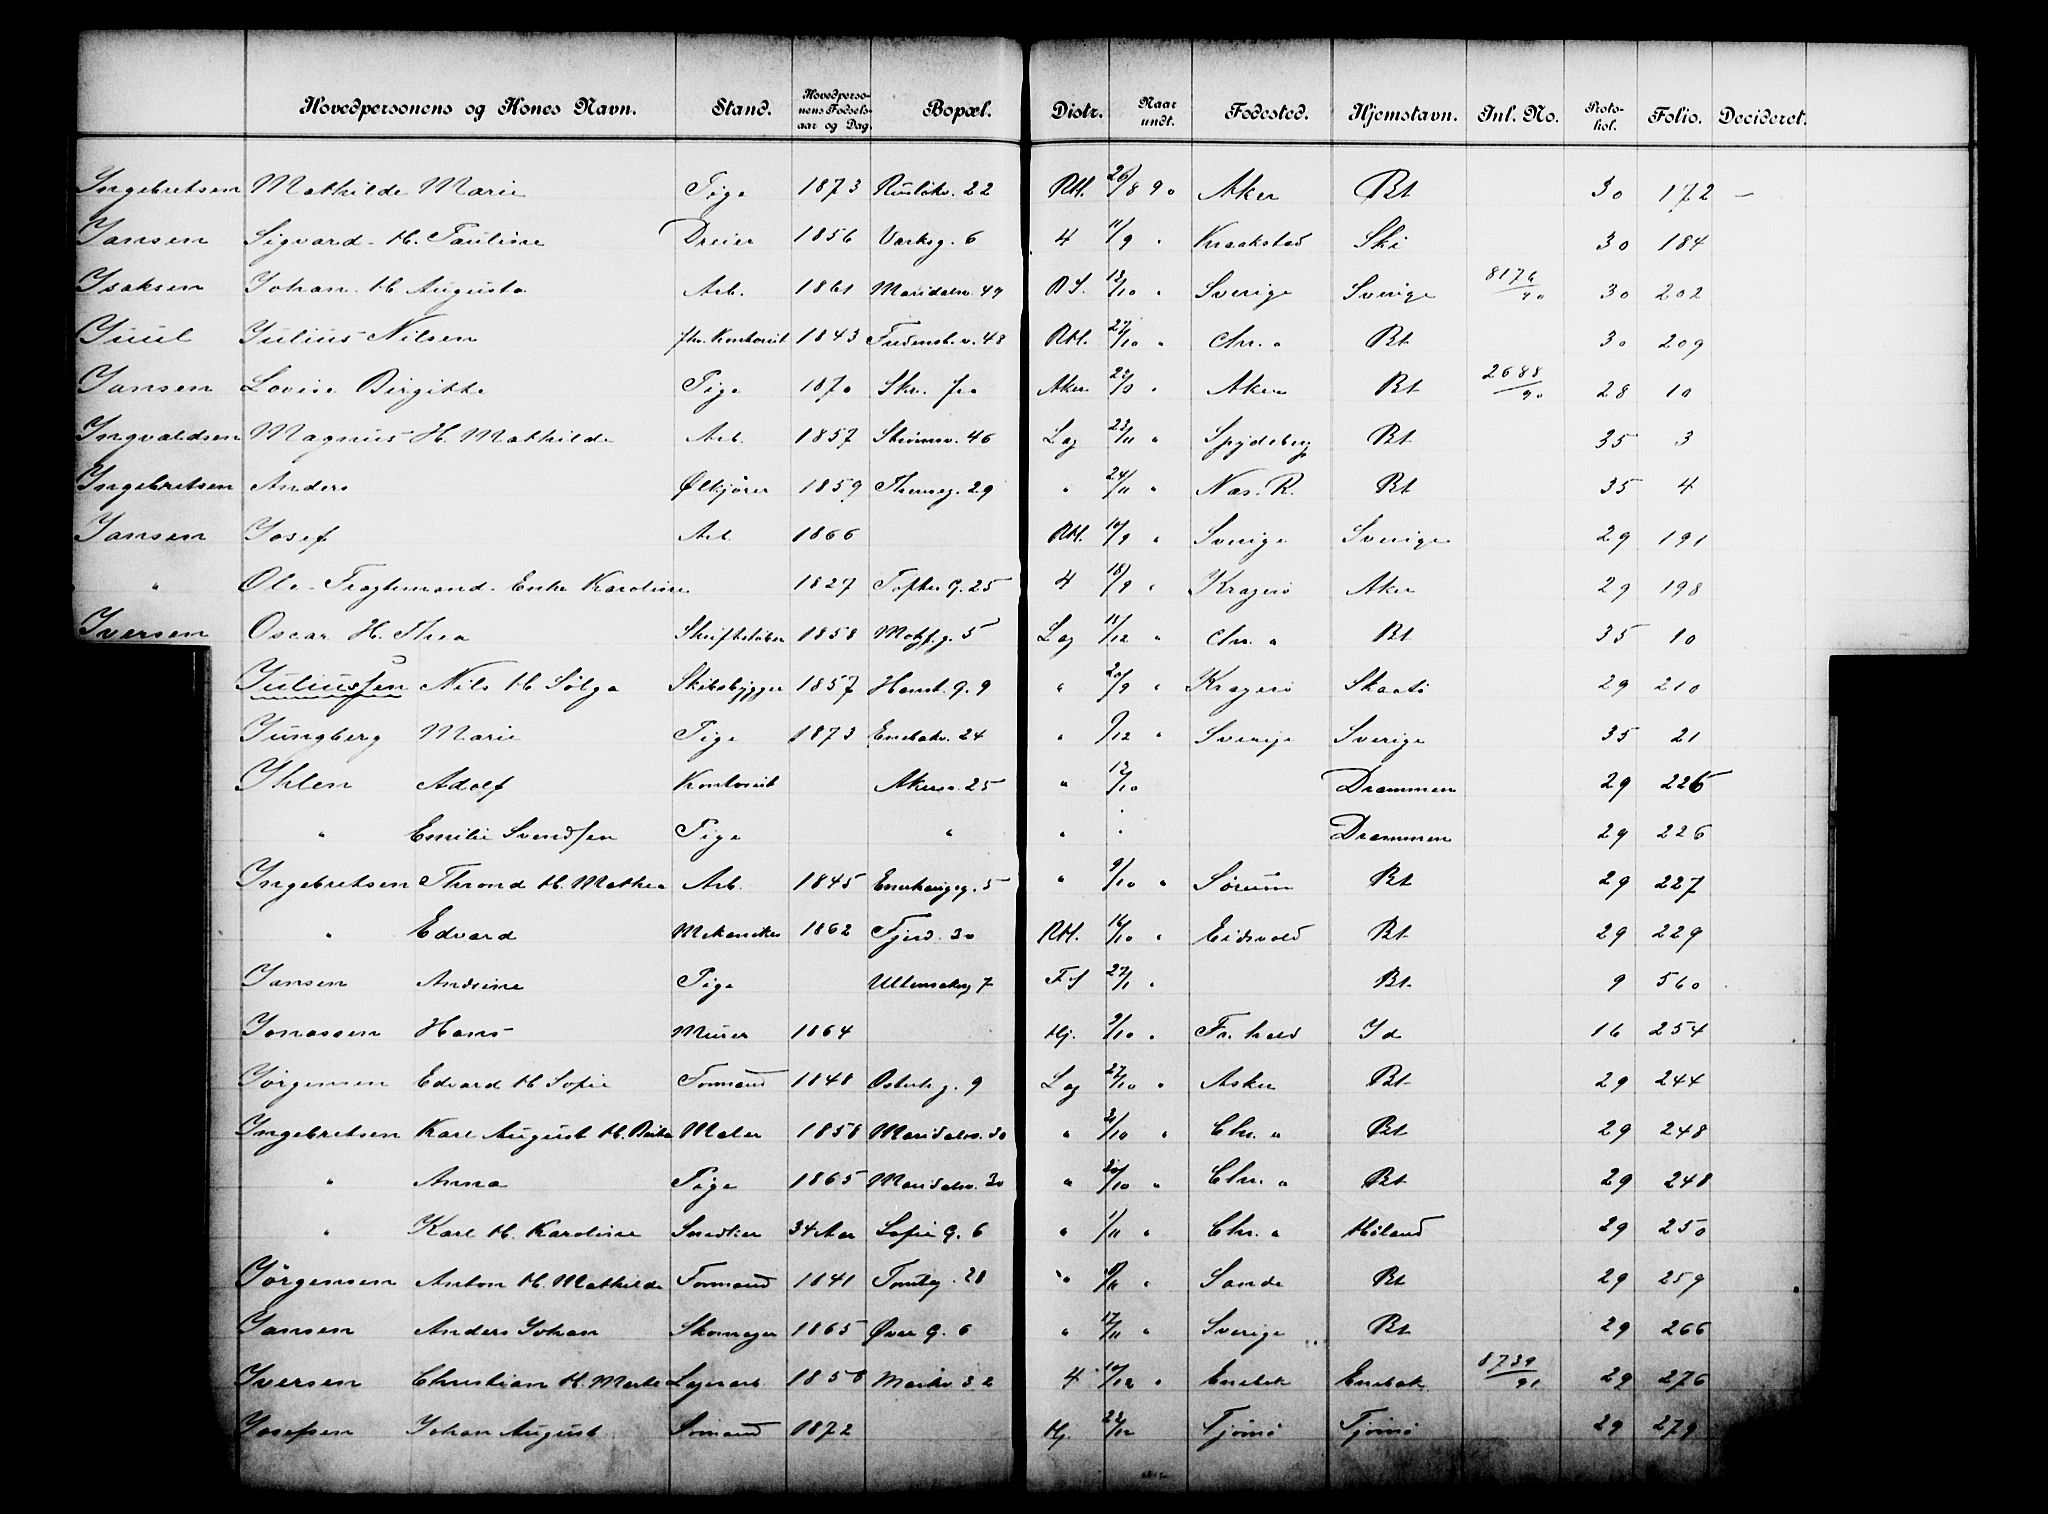 Hovedpersonens og Kones Navn. Stand. Hovedpersonens Fødselsaar og Dag. Bopæl. Distr. Naar undt. Fødested. Hjemstavn. Inl. No. Protokol. Folio. Decideret.
Ingebretsen Mathilde Marie Pige 1873 22 RM. 26/8 90 Aker Bt 30 172 –
Jansen Sigvard H. Pauline Dreier 1856 Verksg. 6 4 11/9 " Kraakstad Ski 30 184
Isaksen Johan H. Augusta Arb. 1861 Maridalsv. 49 13/10 " Sverige Sverige 8176/90 30 202
Juul Julius Nilsen fhv. Kontorist 1843 Fredensb.v. 48 RM. 27/10 " Chr. a Bt 30 209
Jansen Lovise Birgitte Pige 1870 Aker Aker Bt 2688/90 28 10
Ingvaldsen Magnus H. Mathilde Arb. 1857 46 Lag 23/11 " Spydeberg Bt 35 3
Ingebretsen Anders Ølkjører 1859 Thorveg. 29 " 24/11 " Næs. R. Bt 35 4
Jansen Josef Arb. 1866 RM. 10/9 " Sverige Sverige 29 191
" Ole Enke Karoline 1827 Toftes g. 25 4 18/9 " Kragerø Aker 29 198
Iversen Oscar H. Thea Skriftstøber 1858 Motzf.g. 5 Lag 15/12 " Chr. a Bt 35 10
Juliussen Nils H. Sølga Skibsbygger 1857 Hamb. g. 9 " 20/9 " Kragerø Skaatø 29 210
Jungberg Marie Pige 1873 Enebakv. 24 " 9/12 " Sverige Sverige 35 21
Ihlen Adolf Kontorist Akersv. 25 " 12/10 Drammen 29 226
" Emilie Svendsen Pige " " " Drammen 29 226
Ingebretsen Thrond H. Mathea Arb. 1845 Enerhaugsg. 5 " 9/10 " Sørum Bt 29 227
" Edvard Mekaniker 1862 Fjerd. 30 RM. 16/10 " Eidsvold Bt 29 229
Jansen Andrine Pige Ullensakerg 7 FS 27/1 " Bt 9 560
Jonassen Hans Murer 1864 Hj. 9/10 " Fr. hald Id 16 254
Jørgensen Edvard H. Sofie Tomand 1848 Osterh.g. 9 Lag 27/10 " Asker Bt 29 244
Ingebretsen Karl August H. Maler 1858 Maridalsv. 30 " 31/10 " Chr. a Bt 29 248
" Anna Pige 1865 Maridalsv. 30 " 30/10 " Chr. a Bt 29 248
" Karl H. Karoline Snedker 34 Aar Sofie g. 6 " 1/11 " Chr. a Høland 29 250
Jørgensen Anton H. Mathilde Tomand 1841 Tomteg. 28 " " Sande Bt 29 259
Jansen Anders Johan Skomager 1865 Øvre g. 6 " 17/11 " Sverige Bt 29 266
Iversen Christian H. Marthe Lagerarb. 1858 Markv. 32 4 10/12 " Enebak Enebak 8739/91 29 276
Josefsen Johan August Sømand 1872 Hj. 22/12 Tjømø Tjømø 29 279